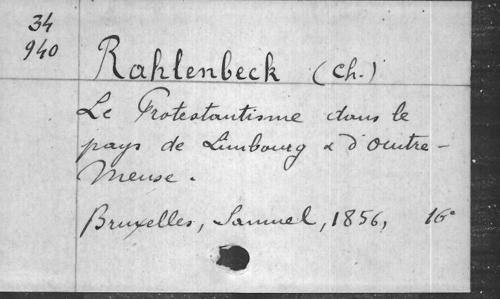 34
940
Rahlenbeck (Ch.)
Le Protestantisme dans le
pays de Limbourg & d'Outre-
Meuse.
Bruxelles, Samuel, 1856, 16°